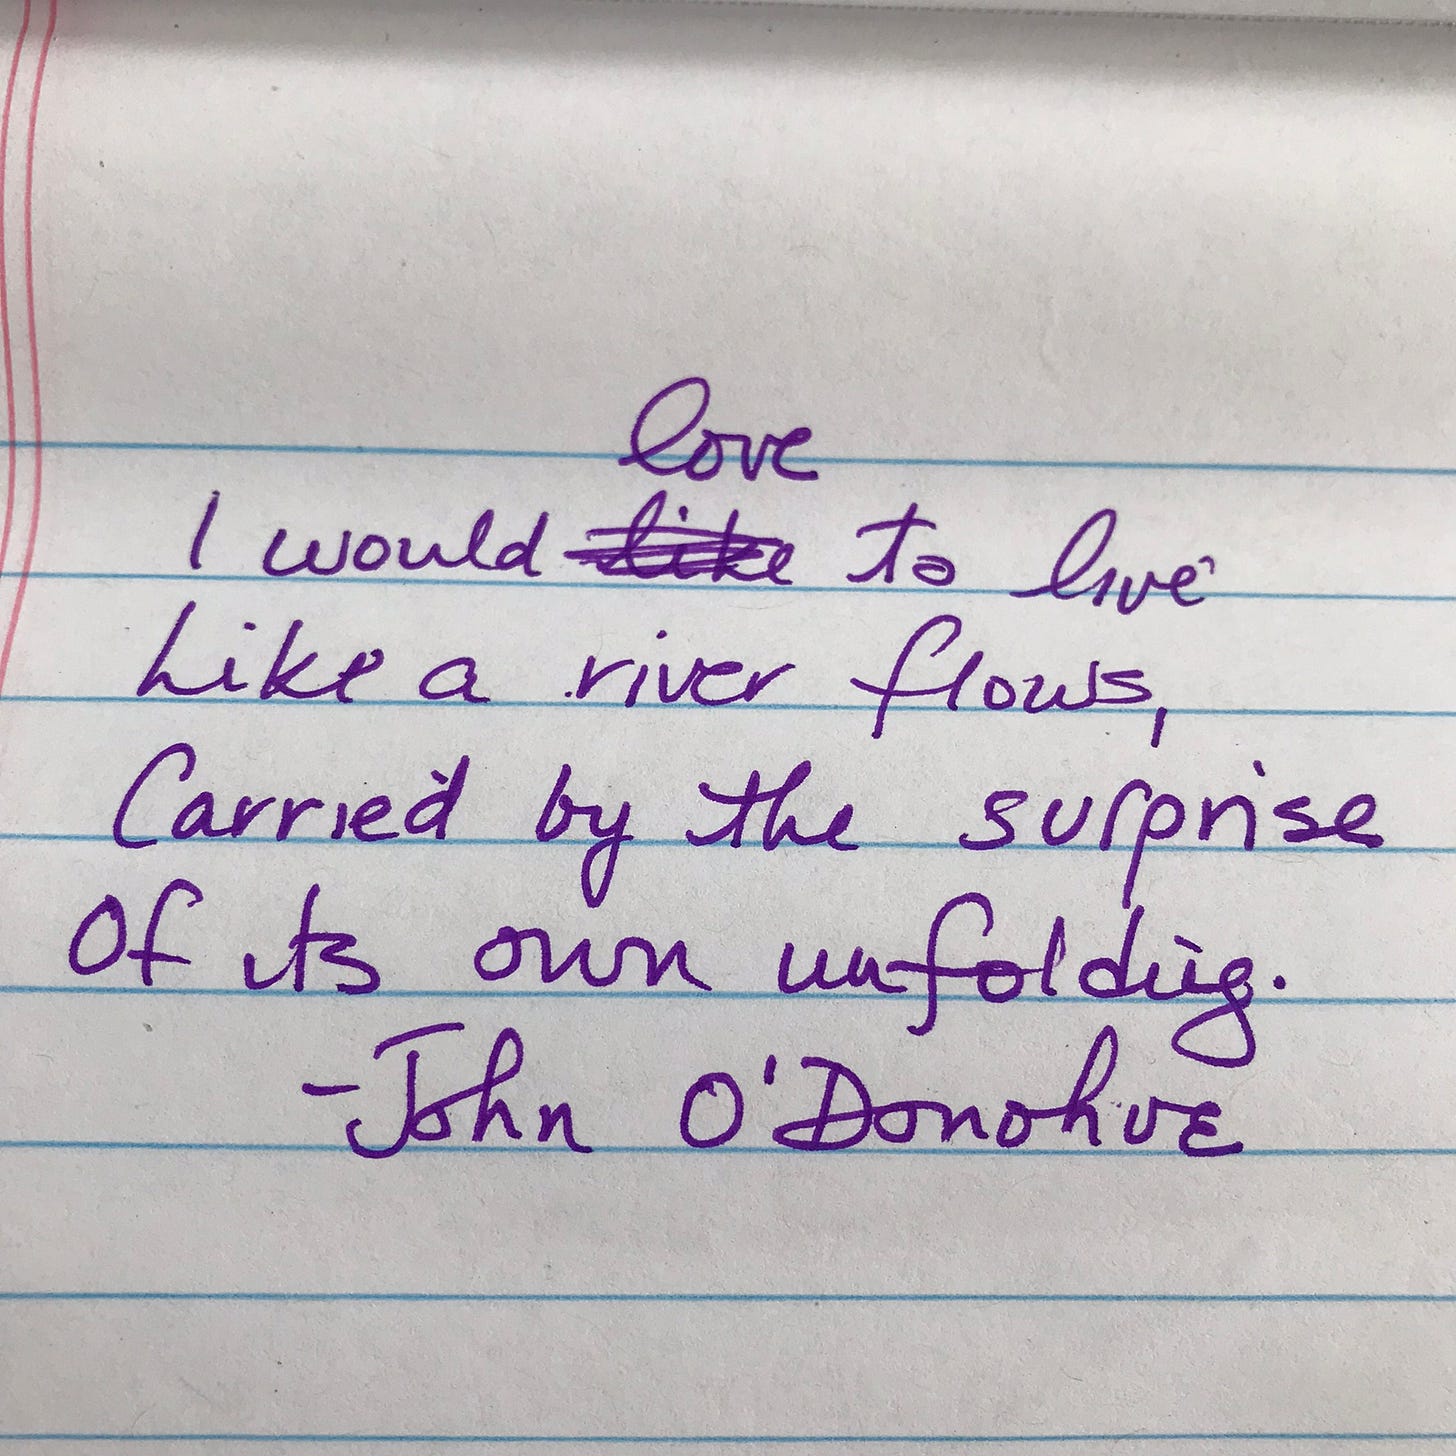 love
I would like to live
Like a river flows,
Carried by the surprise
Of its own unfolding.
-John O'Donohue